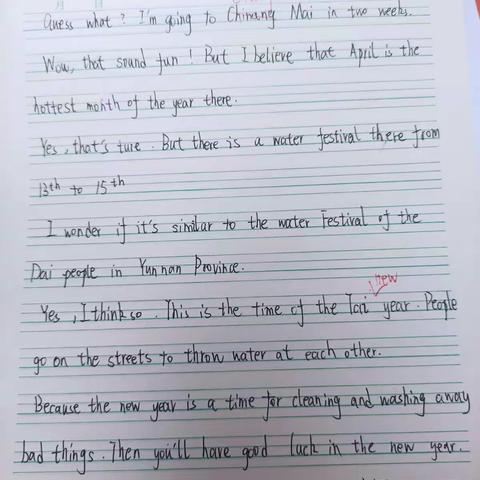 Guess what ? I'm going to Chinang Mai in two weeks.
Wow, that sound fun ! But I believe that April is the
hottest month of the year there.
Yes, that's ture. But there is a water festival there from
13th to 15th
I wonder if it's similar to the water Festival of the
Dai people in Yunnan Province.
new
Yes, I think so. This is the time of the Tai year. People
go on the streets to throw water at each other.
Because the new year is a time for cleaning and washing away
bad things. Then you'll have good luck in the new year.